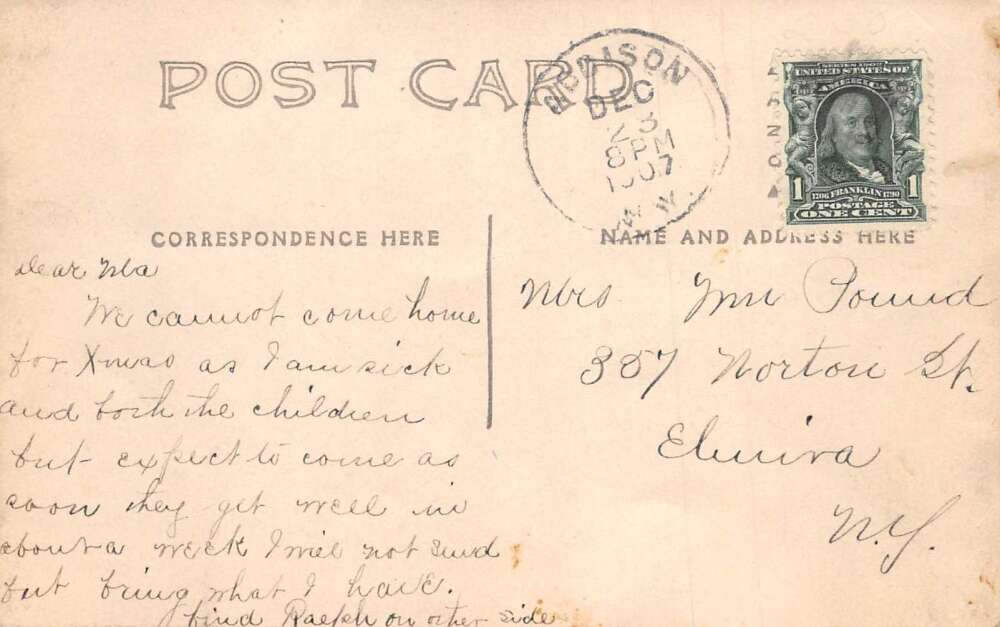 POST CARD
DEC
23
8 PM
1907
N.Y.
SERIES 1902
UNITED STATES OF
AMERICA
1 1706 FRANKLIN 1790 1
POSTAGE
ONE CENT
CORRESPONDENCE HERE
NAME AND ADDRESS HERE
Dear Ma
We cannot come home
for Xmas as I am sick
and both the children
but expect to come as
soon they get well in
about a week I will not send
but bring what I have.
find Raeph on other side
Mrs Wm Pound
357 Norton St.
Elmira
N.Y.